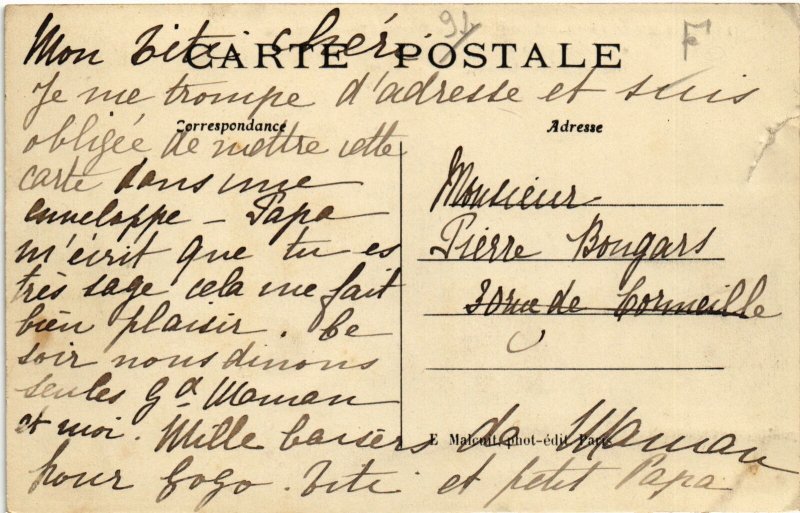 91
F
CARTE POSTALE
Mon Titi chéri
Je me trompe d'adresse et suis
Correspondance
obligée de mettre cette
carte dans une
enveloppe – Papa
m'écrit que tu es
très sage cela me fait
bien plaisir. Ce
soir nous dinons
seules Gd Maman
et moi. Mille baisers de Maman
pour Gogo. Titi et petit Papa
Adresse
Monsieur
Pierre Bougars
30 rue de Cormeille
E Malcuit, phot-édit Paris